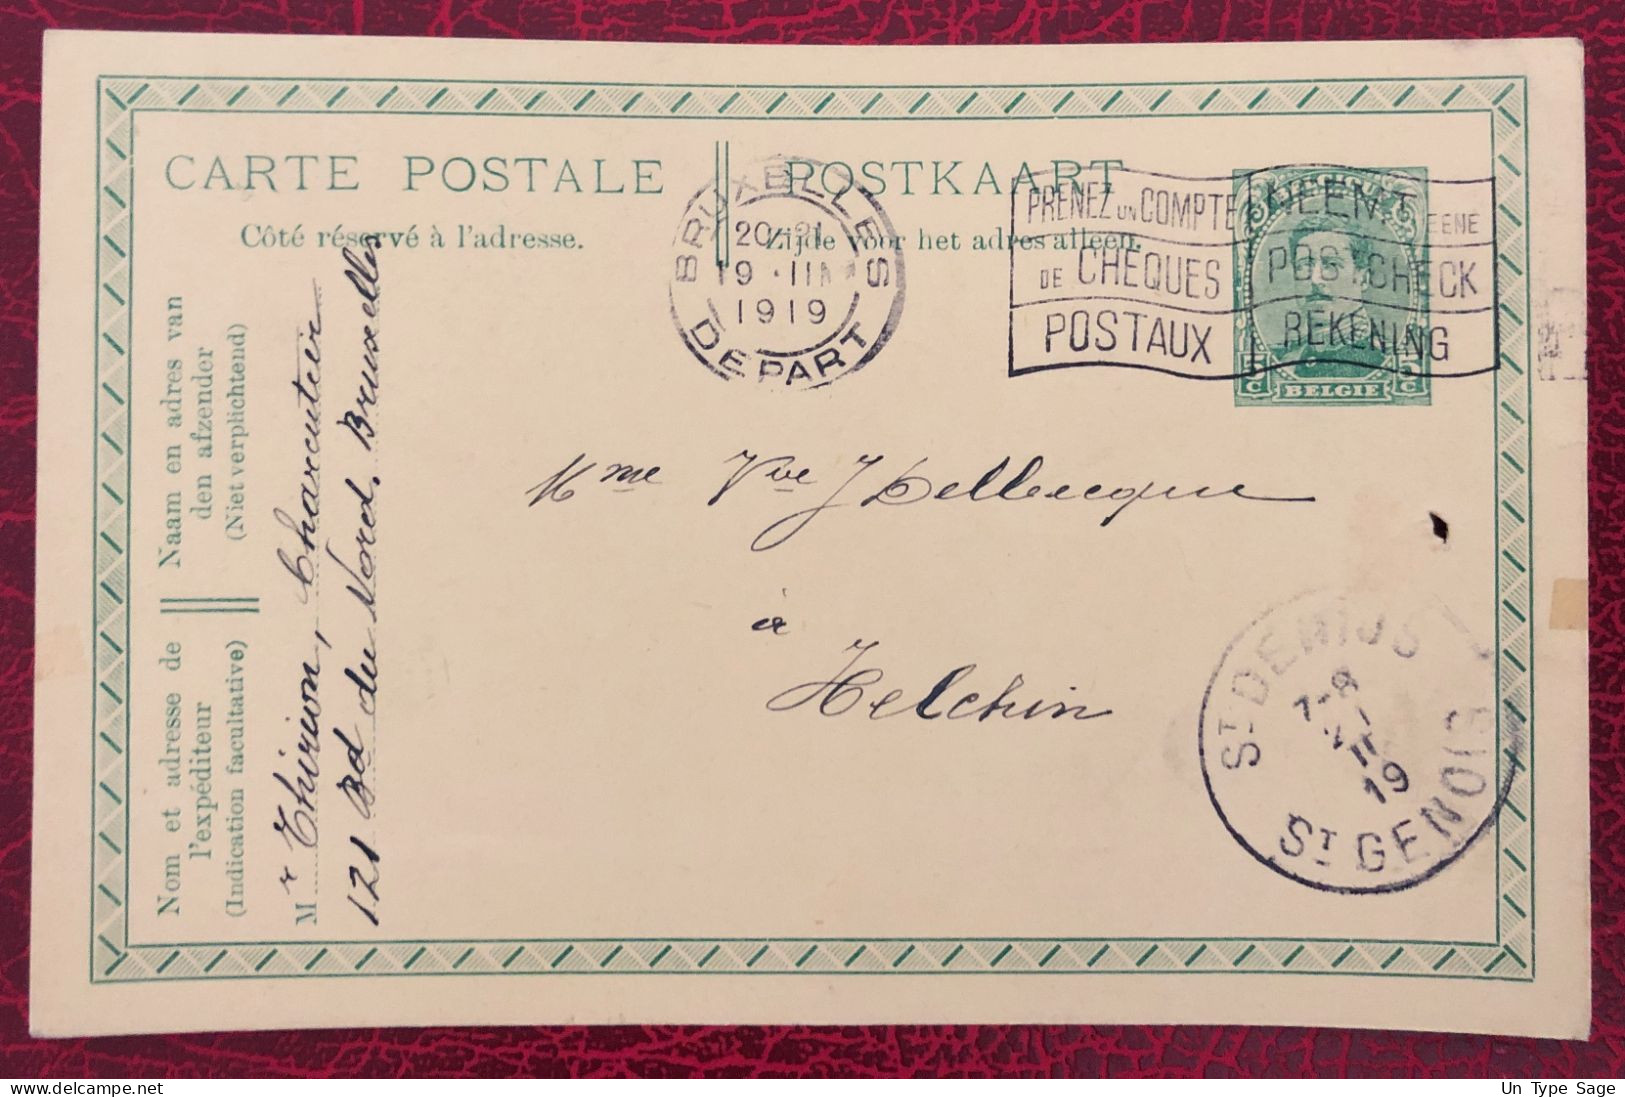 CARTE POSTALE
Côté réservé à l'adresse.
POSTKAART
Zijde voor het adres alleen.
BRUXELLES
20-21
19 · III
1919
DEPART
PRENEZ UN COMPTE
DE CHEQUES
POSTAUX
NEEMT EENE
POSTCHECK
REKENING
BELGIE
Mme Vve J Dellecque
à
Helchin
ST DENIJS
7-8
19
ST GENOIS
Naam en adres van
den afzender
(Niet verplichtend)
Nom et adresse de
l'expéditeur
(Indication facultative)
Mr Thirion, Charcutier
121 Bd du Nord. Bruxelles
Un Type Sage